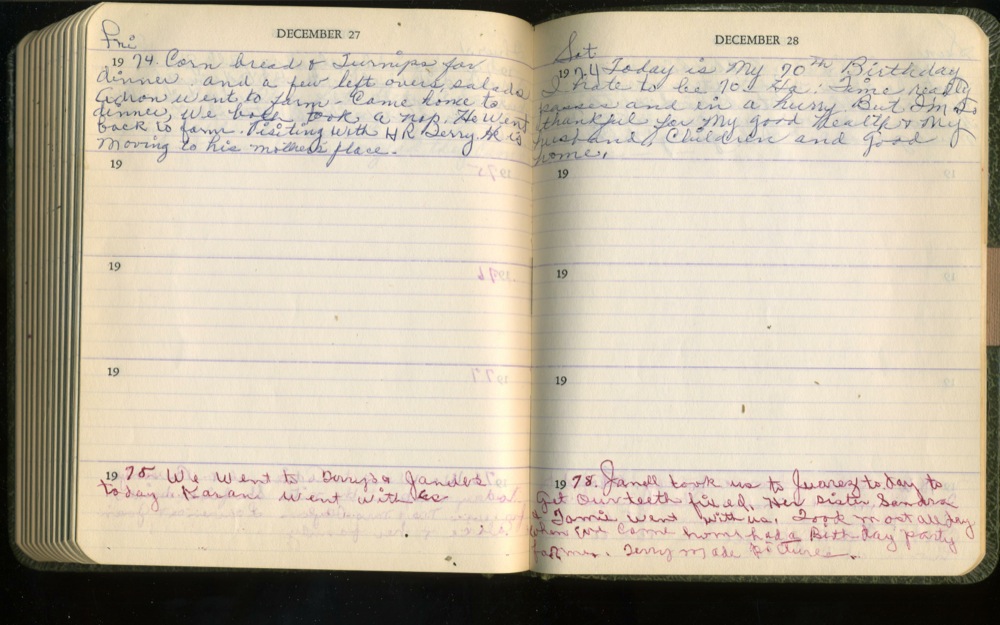 DECEMBER 27
Fri
1974. Corn bread & Turnips for
dinner and a few left overs, salads
went to farm - Came home to
dinner, we both took a nap. He went
back to farm. Visiting with HR Terry. He is
moving to his mothers place.
19
19
19
1978 We went to Terrys & Janells
today Karan went with us
DECEMBER 28
Sat
1974 Today is My 70th Birthday
I hate to be 70. Ha: Time really
passes and in a hurry But I'm so
thankful for My good Health & My
Husband, Children and good
home.
19
19
19
1978. Janell took us to Juarez today to
Get our teeth fixed. Her sister Sandra
& Jamie went with us. Took most all day
when we came home had a Birthday party
for me. Terry made pictures.